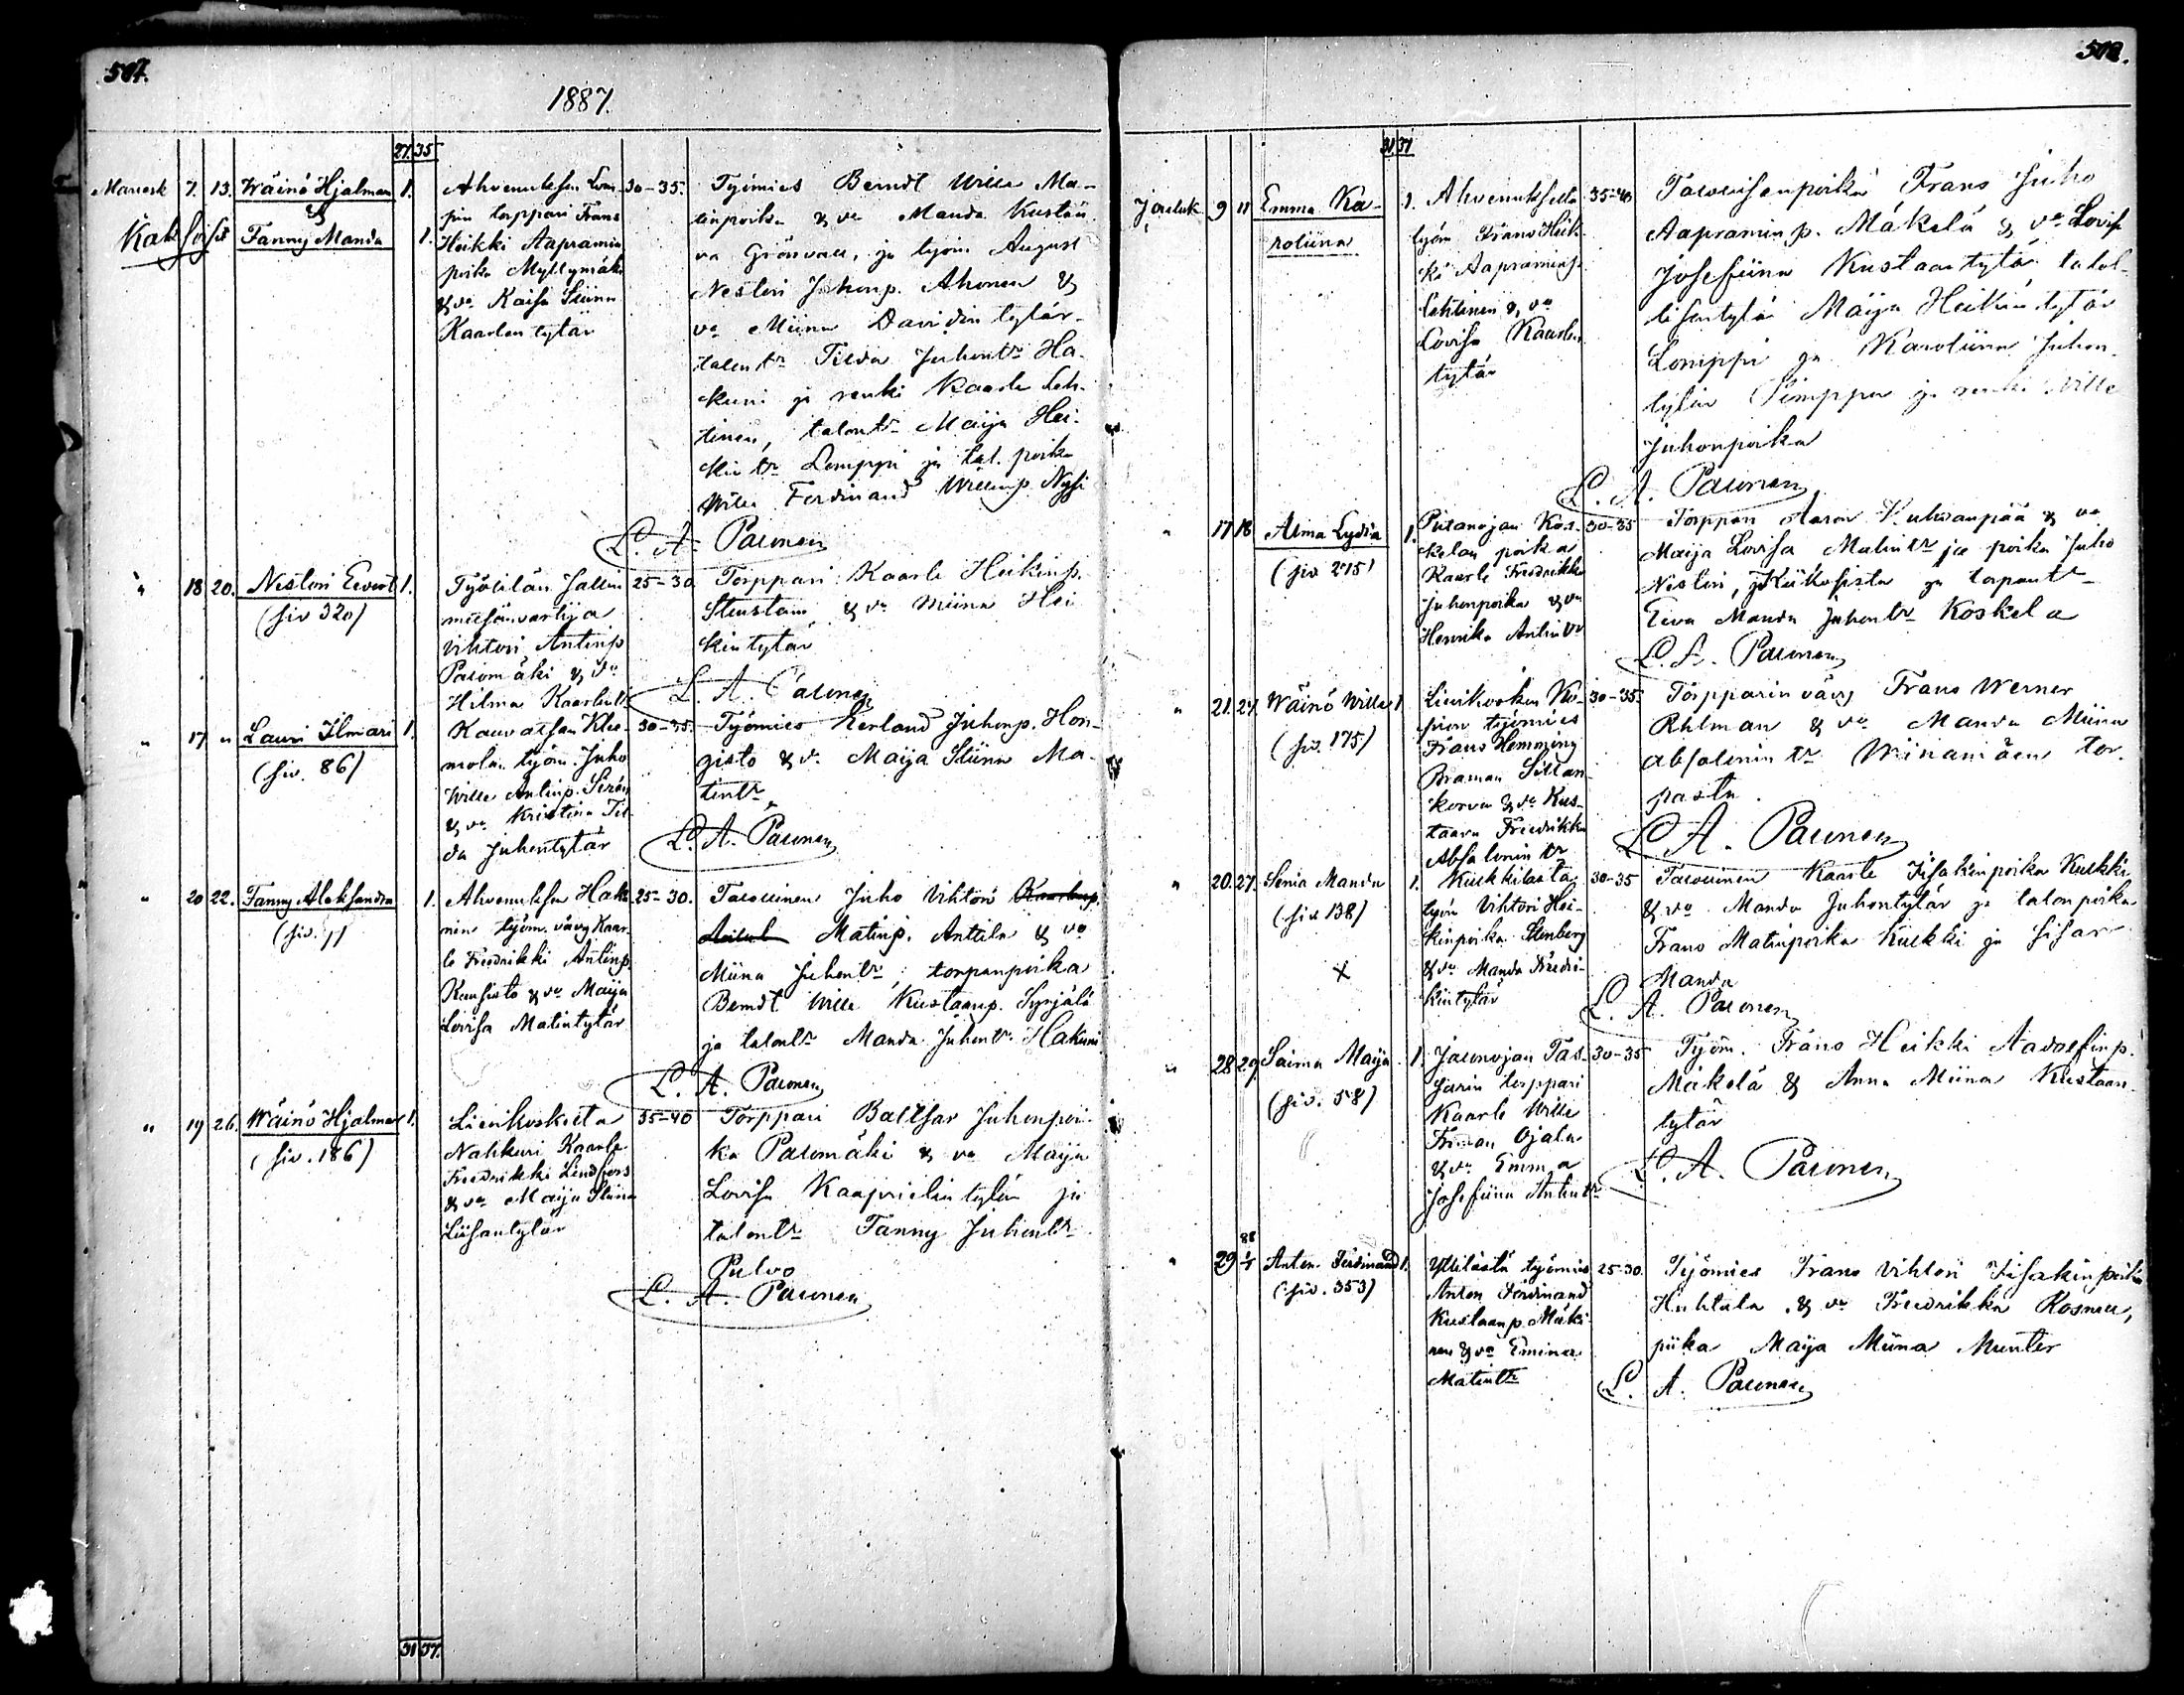 507.
1887.
27. 35
Marrask 7. 13. Wäinö Hjalmar 1.
&
Kaksoiset Fanny Manda 1.
Ahvenuksen Lom-
pin torppari Frans
Heikki Aapramin
poika Myllymäki
& vo Kaisa Stiina
Kaarlen tytär
30-35.
Työmies Berndt Wille Ma-
tinpoika & vo Manda Kustan
va Grönvall, ja työm. August
Nestori Juhonp. Ahonen &
vo Miina Davidin tytär
talontr Tilda Juhontr Ha-
kuni ja renki Kaarle Leh-
tinen, talontr Maija Hei-
kin tr Lemppi ja tal. poika
Wille Ferdinand Willenp.
L. A. Paunen
" 18 20. Nestori Evert 1.
(siv 320)
metsänvartija
Vihtori Antinp
Palomäki & vo
Hilma Kaarlentr
25-30
Torppari Kaarle Heikinp.
& vo Miina Hei
kintytär
L. A. Paunen
" 17 " Lauri Ilmari 1.
(siv. 86)
Kauvatsan
työm. Juho
Wille Antinp. Sirén
& vo Kristina Til-
da Juhontytär
30-35.
Työmies Juhonp. Hon-
gisto & vo Maija Stiina Ma-
tintr
L. A. Paunen
" 20 22. Fanny Aleksandra 1.
Ahvenuksen Haku-
nin työm. vävy Kaar-
le Fredrikki Antinp.
Kansisto & vo Maija
Lovisa Matintytär
25-30.
Talollinen Juho Vihtori
Matinp. Anttila & vo
Miina Juhontr, torpanpoika
Berndt Wille Kustaanp. Syrjälä
ja talontr Manda Juhontr Hakuni
L. A. Paunen
" 19 26. Wäinö Hjalmar 1.
(siv. 186)
Lievikoskelta
Nahkuri Kaarle
Fredrikki Lindfors
& vo Maija Stiina
Liisantytär
35-40
Torppari Baltsar Juhonpoi-
ka Palomäki & vo Maija
Lovisa Kaaprielin tytär ja
talontr Fanny Juhontr
Pulvo
L. A. Paunen
31 37.
508.
31 37
Jouluk 9 11 Emma Ka-
roliina
1.
Ahvenukselta
työm Frans Heik-
ki Aapraminp.
Lehtinen & vo
Lovisa Kaarlen
tytär
35-40
Talollisenpoika Frans Juho
Aapramin p. Mäkelä & vo Lovisa
Josefiina Kustaantytär talol-
lisentytär Maija Heikin tytär
Lomppi ja Karoliina Juhon-
tytär Pimppu ja renki Wille
Juhonpoika
L. A. Paunen
" 17 18 Alma Lydia 1.
(siv 215)
Piilanojan Kos-
kelan poika
Kaarle Fredrikki
Juhonpoika & vo
Henrika Antintr
30-35
Torppari Aaron Kuhanpää & vo
Maija Lovisa Matintr ja poika Juho
Nestori, ja torpantr
Eeva Manda Juhontr Koskela
L. A. Paunen
" 21. 27. Wäinö Wille 1
(siv. 175)
työmies
Frans Hemming
Sillan-
korva & vo Kus-
taava Fredrikka
Absalonin tr
30-35.
Torpparin vävy Frans Werner
Ahlman & vo Manda Miina
Absalonin tr Winamäen tor-
pasta
L. A. Paunen
" 20. 27. Senia Manda 1.
(siv 138)
Kukkilasta
työm Vihtori Hei-
kinpoika Stenberg
& vo Manda Fredri-
kintytär
30-35
Talollinen Kaarle Iisakinpoika Kukki
& vo Manda Juhontytär ja talonpoika
Frans Matinpoika Kukki ja sisar
Manda
L. A. Paunen
" 28 29. Saima Maija 1.
(siv. 58)
Jaunojan Tas-
torppari
Kaarle Wille
Ojala
& vo Emma
Josefiina Antintr
30-35
Työm. Frans Heikki Aadolfinp.
Mäkelä & Anna Miina Kustaan-
tytär
L. A. Paunen
88
" 29 1/1 Anton Ferdinand 1.
(siv. 353)
Yttilästä työmies
Anton Ferdinand
Kustaanp. Mäki-
nen & vo Emina
Matintr
25-30.
Työmies Frans Vihtori Iisakinpoika
Huhtala & vo Fredrikka
piika Maija Miina Munter
L. A. Paunen